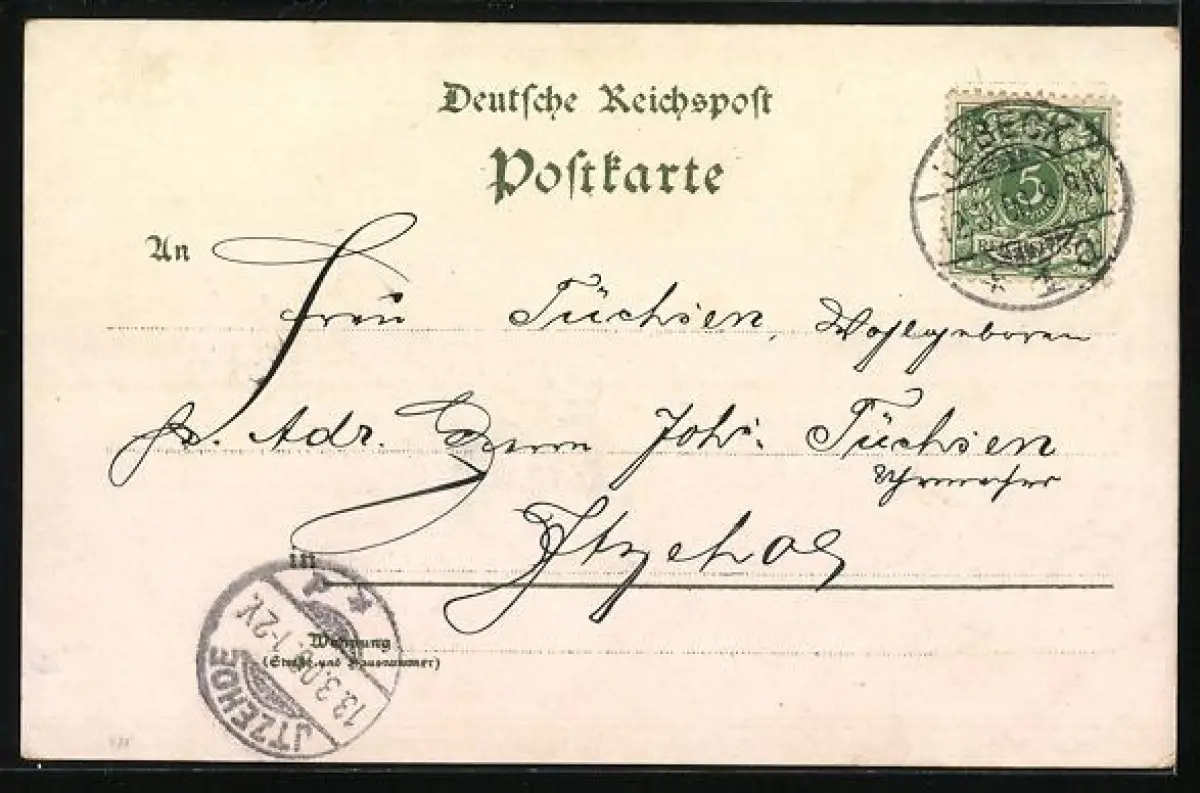 Deutsche Reichspost
Postkarte
LÜBECK
5
REICHSPOST
An
Frau Tüchsen, Wohlgeboren
pr. Adr. Herrn Johs. Tüchsen
Uhrmacher
in Itzehoe
JTZEHOE
13.3.
1-2V.
Wohnung
(Straße und Hausnummer)